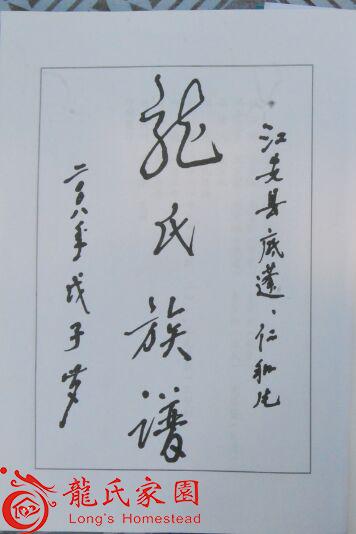 江安县底蓬、仁和
龍氏族譜
二00八年戊子岁
龍氏家園
Long's Homestead